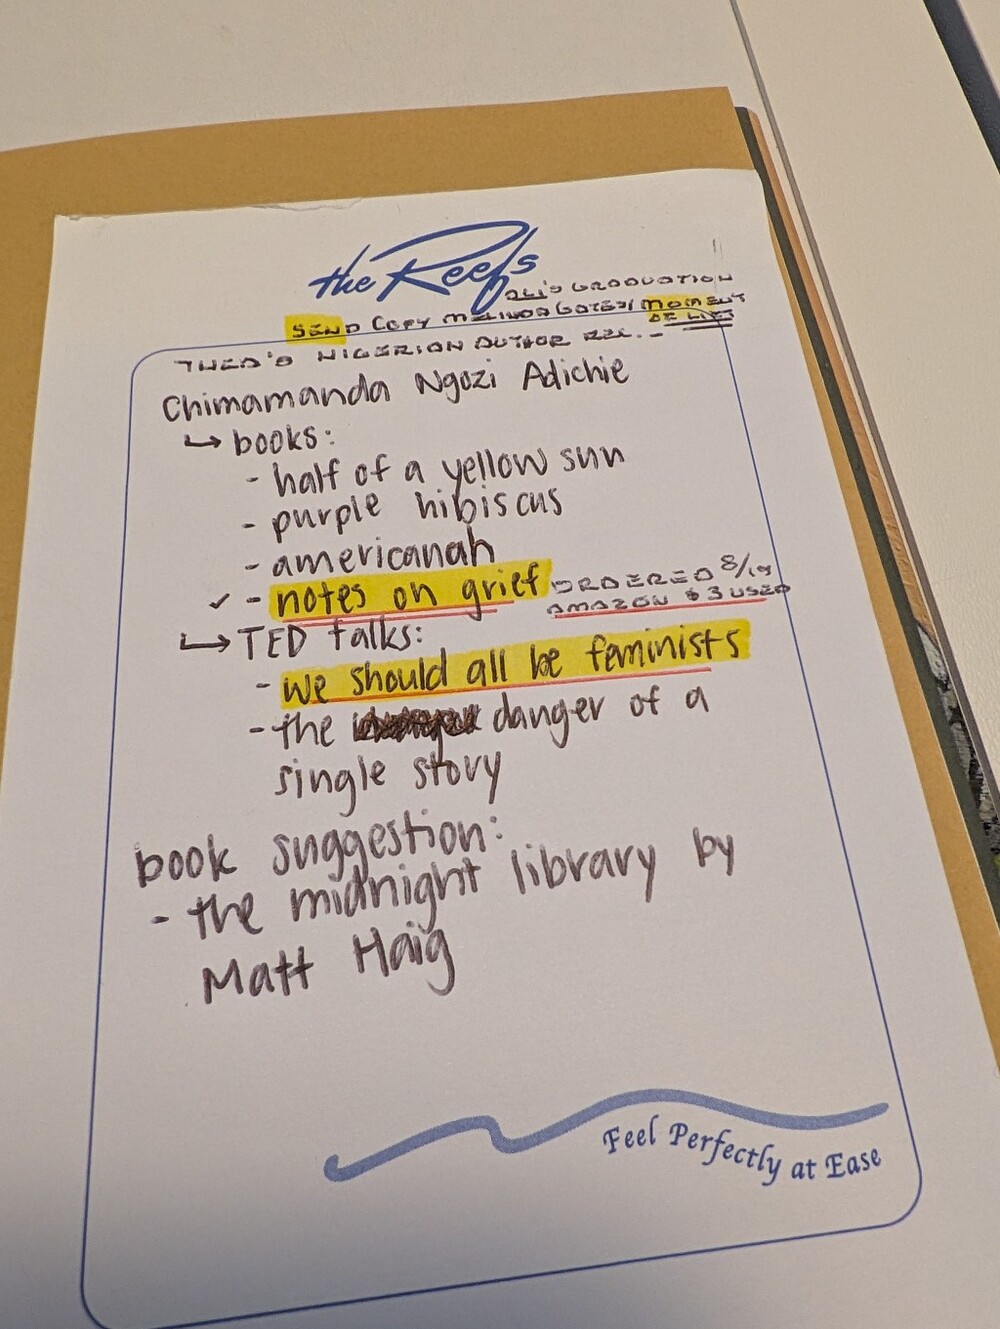 the Reefs
GRADUATION
SEND COPY MELINDA GATES/ MOMENT
OF LIFT
NIGERIAN AUTHOR REC. -
Chimamanda Ngozi Adichie
↳ books:
- half of a yellow sun
- purple hibiscus
- americanah
✓ - notes on grief ORDERED 8/19
AMAZON $3 USED
↳ TED talks:
- we should all be feminists
- the danger of a
single story
book suggestion:
- the midnight library by
Matt Haig
Feel Perfectly at Ease